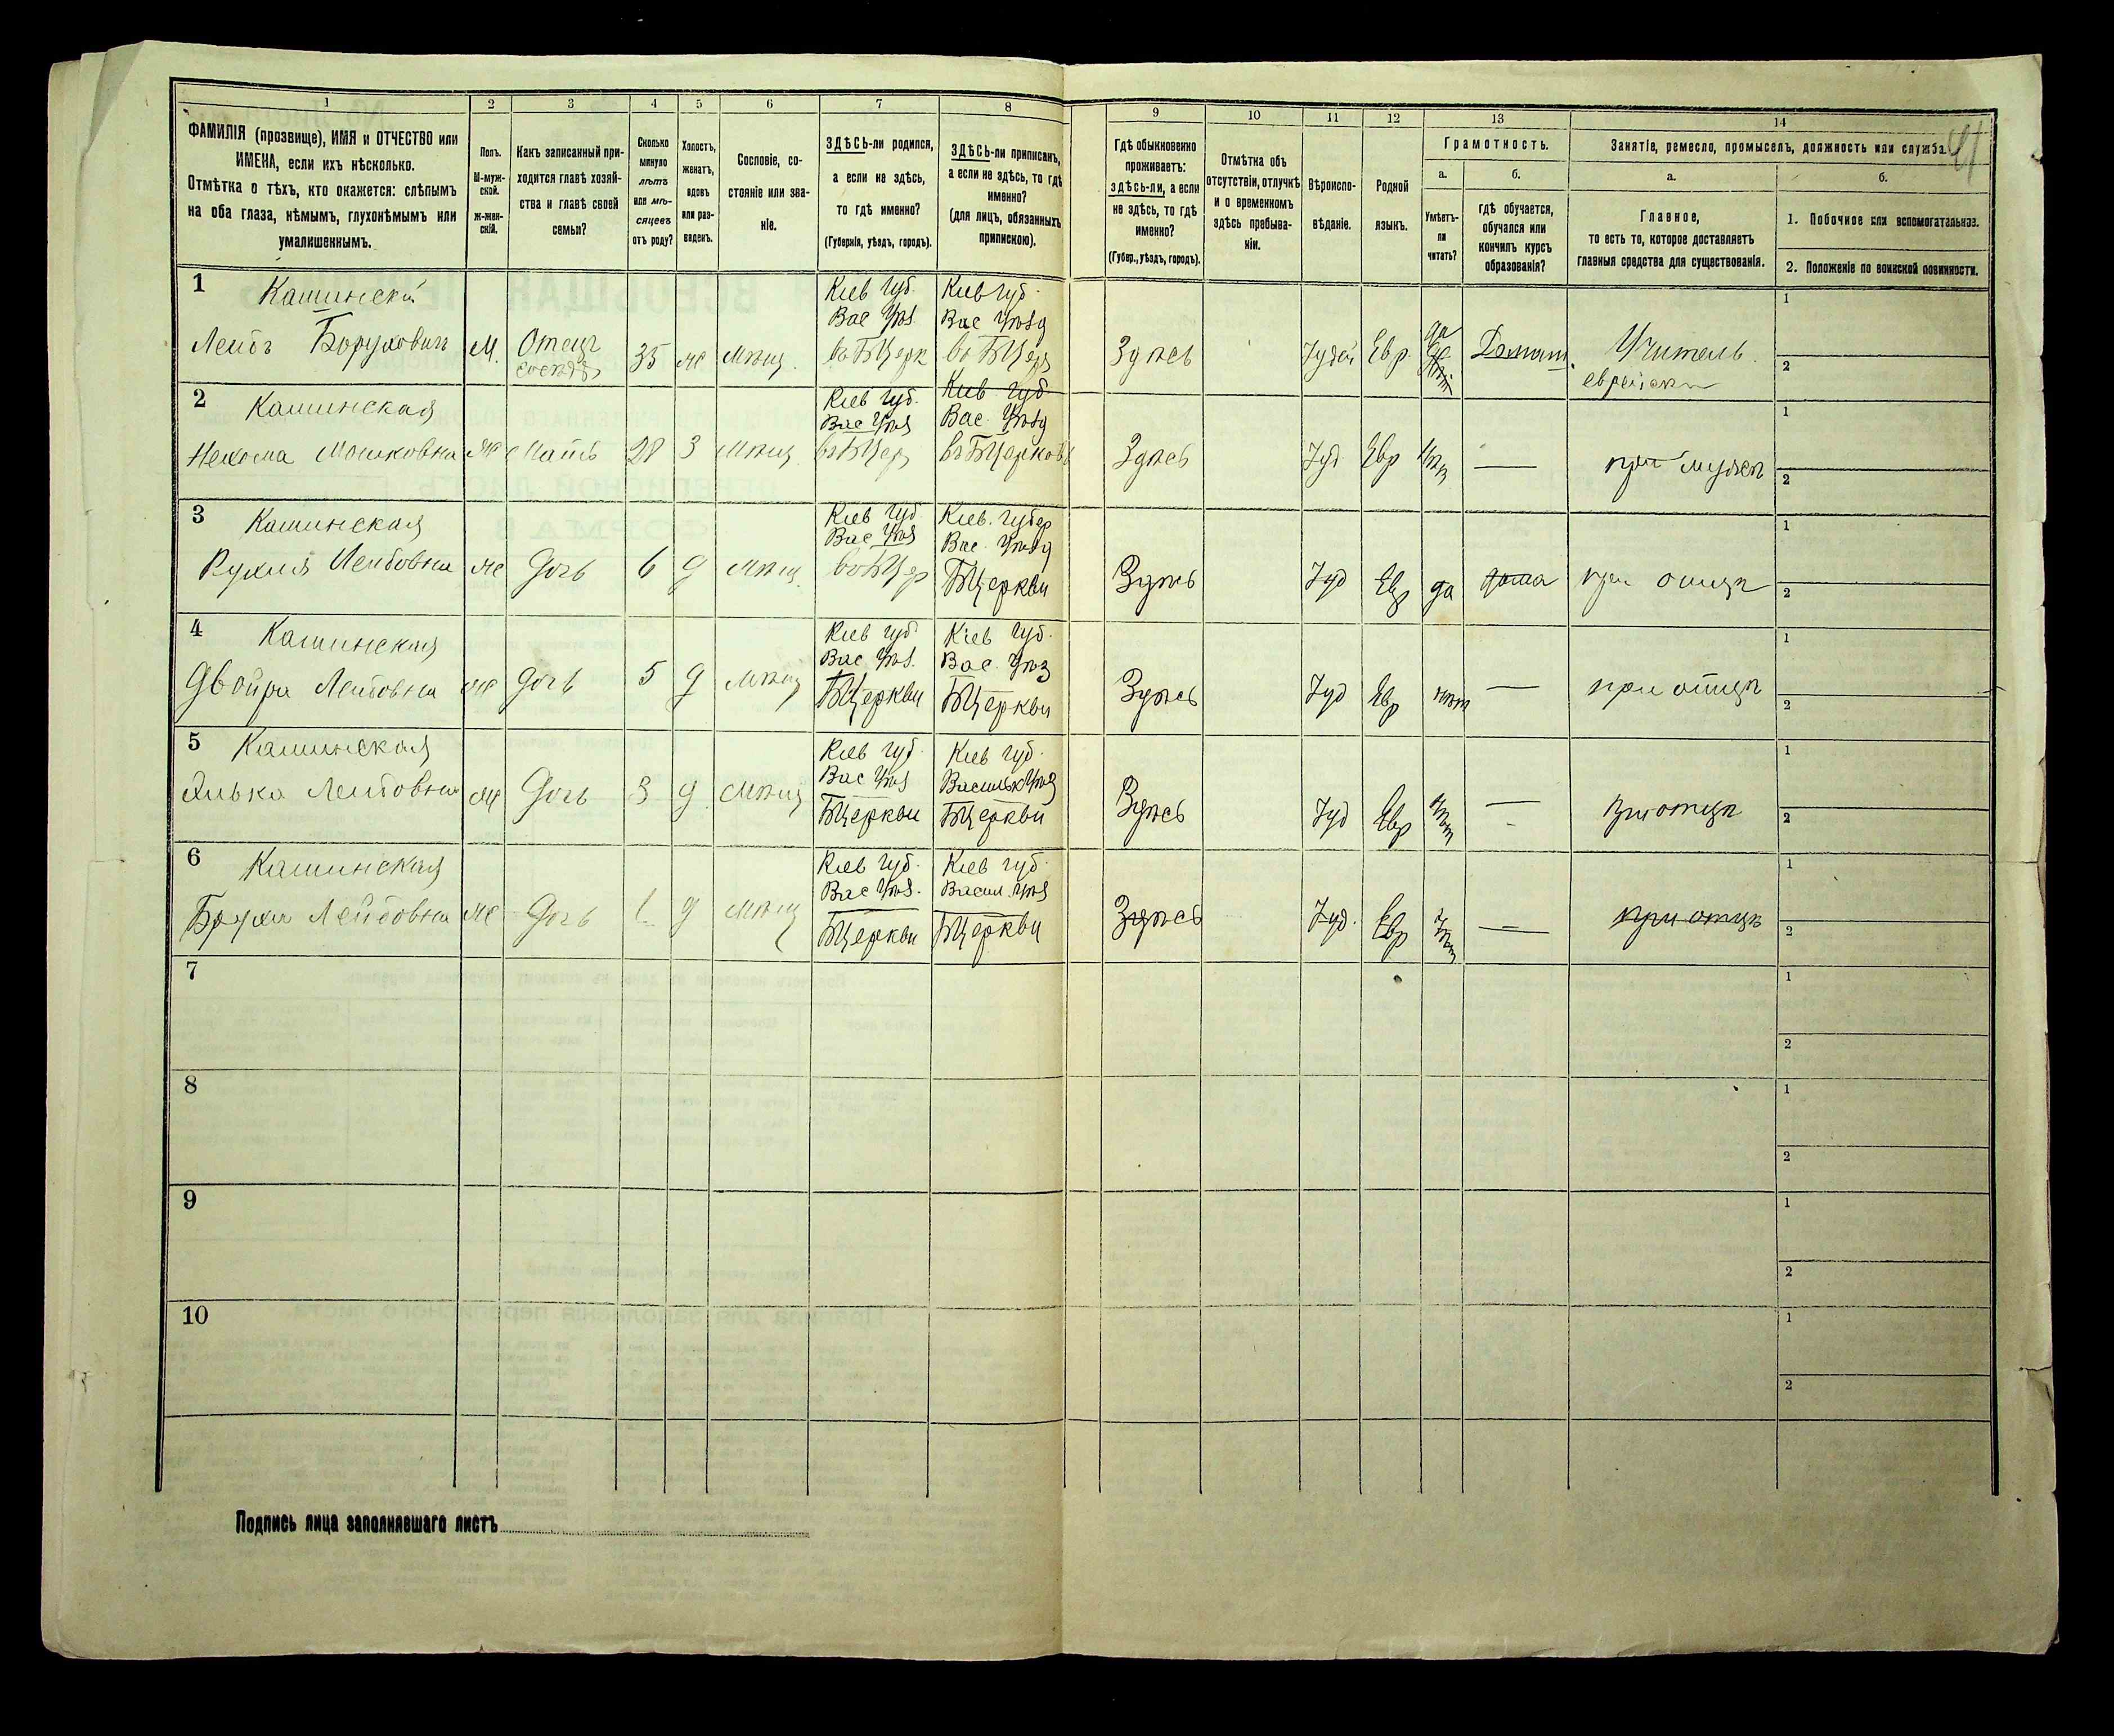 1 2 3 4 5 6 7 8 9 10 11 12 13 14
ФАМИЛІЯ (прозвище), ИМЯ и ОТЧЕСТВО или
ИМЕНА, если ихъ нѣсколько.
Отмѣтка о тѣхъ, кто окажется: слѣпымъ
на оба глаза, нѣмымъ, глухонѣмымъ или
умалишеннымъ.
Полъ.
М-муж-
ской.
ж-жен-
скій.
Какъ записанный при-
ходится главѣ хозяй-
ства и главѣ своей
семьи?
Сколько
минуло
лѣтъ
или мѣ-
сяцевъ
отъ роду?
Холостъ,
женатъ,
вдовъ
или раз-
веденъ.
Сословіе, со-
стояніе или зва-
ніе.
ЗДѢСЬ-ли родился,
а если не здѣсь,
то гдѣ именно?
(Губернія, уѣздъ, городъ).
ЗДѢСЬ-ли приписанъ,
а если не здѣсь, то гдѣ
именно?
(для лицъ, обязанныхъ
припискою).
Гдѣ обыкновенно
проживаетъ:
здѣсь-ли, а если
не здѣсь, то гдѣ
именно?
(Губер., уѣздъ, городъ).
Отмѣтка объ
отсутствіи, отлучкѣ
и о временномъ
здѣсь пребыва-
ніи.
Вѣроиспо-
вѣданіе.
Родной
языкъ.
Грамотность.
а.
Умѣетъ-
ли
читать?
б.
гдѣ обучается,
обучался или
кончилъ курсъ
образованія?
Занятіе, ремесло, промыселъ, должность или служба.
а.
Главное,
то есть то, которое доставляетъ
главныя средства для существованія.
б.
1. Побочное или вспомогательное.
2. Положеніе по воинской повинности.
41
1 Кашинскій Кіев губ. Кіев губ. 1
Вас Уѣз. Вас Уѣзд да
Лейбъ Боруховичъ М. Отецъ 35 ж Мѣщ. въ БЦерк въ БЦерк Здѣсь Іудей Евр. Домаш. Учитель
2
еврейски
2 Кашинская Кіев губ. Кіев губ 1
Вас Уѣз Вас. Уѣзд
Нехома Мошковна Ж Мать 28 З Мѣщ въ БЦер въ БЦеркови Здѣсь Іуд Евр Нѣт — при мужѣ
2
3 Кашинская Кіев губ Кіев. губер 1
Вас Уѣз Вас. Уѣзд
Рухля Лейбовна Ж Дочь 6 д Мѣщ. въ БЦер БЦеркви Здѣсь Іуд Евр да дома при отцѣ
2
4 Кашинская Кіев губ Кіев губ. 1
Вас Уѣз. Вас. Уѣз
Двойра Лейбовна Ж Дочь 5 д Мѣщ БЦеркви БЦеркви Здѣсь Іуд Евр нѣт — при отцѣ
2
5 Кашинская Кіев губ. Кіев губ. 1
Вас Уѣз ВасилькУѣз
Лейбовна Ж Дочь 3 д Мѣщ БЦеркви БЦеркви Здѣсь Іуд Евр Нѣт — при отцѣ
2
6 Кашинская Кіев губ. Кіев губ. 1
Вас Уѣз. Васил. Уѣз
Бруха Лейбовна Ж Дочь 1 д Мѣщ БЦеркви БЦеркви Здѣсь Іуд. Евр Нѣт — при отцѣ
2
7 1
2
8 1
2
9 1
2
10 1
2
Подпись лица заполнявшаго листъ